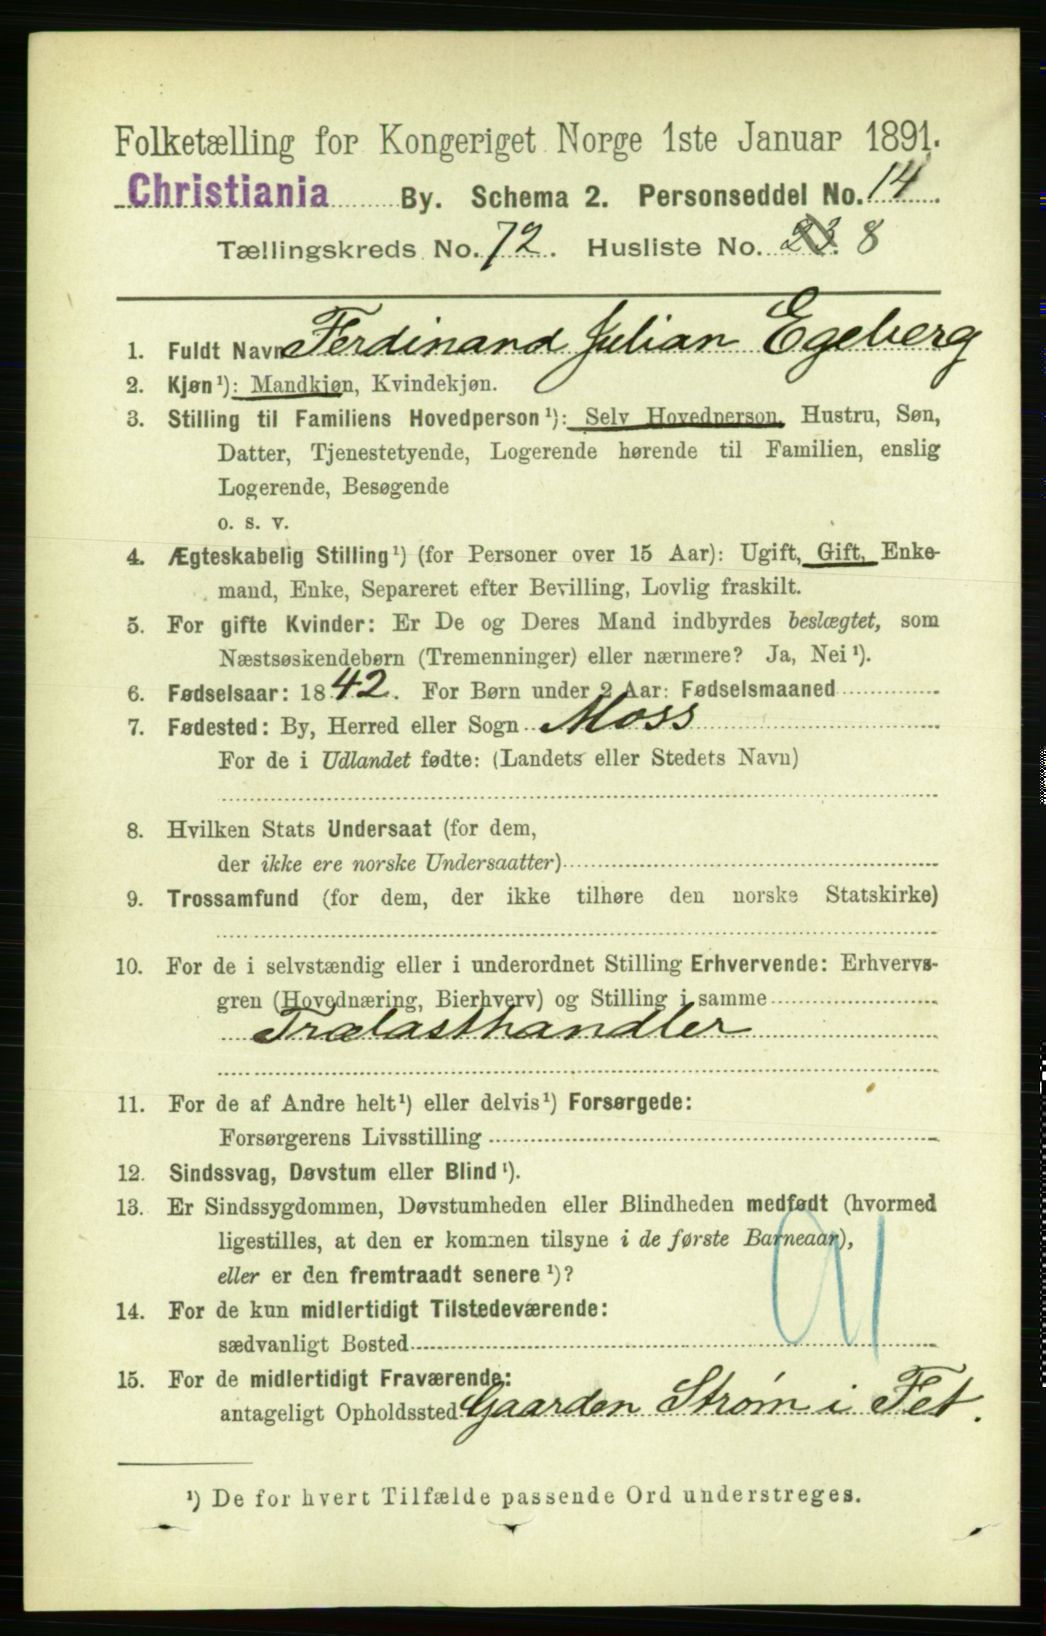 Folketælling for Kongeriget Norge 1ste Januar 1891.
Christiania By. Schema 2. Personseddel No. 14
Tællingskreds No. 72. Husliste No. 23. 8
1. Fuldt Navn Ferdinand Julian Egeberg
2. Kjøn¹): Mandkjøn, Kvindekjøn.
3. Stilling til Familiens Hovedperson¹): Selv Hovedperson, Hustru, Søn,
Datter, Tjenestetyende, Logerende hørende til Familien, enslig
Logerende, Besøgende
o. s. v.
4. Ægteskabelig Stilling¹) (for Personer over 15 Aar): Ugift, Gift, Enke-
mand, Enke, Separeret efter Bevilling, Lovlig fraskilt.
5. For gifte Kvinder: Er De og Deres Mand indbyrdes beslægtet, som
Næstsøskendebørn (Tremenninger) eller nærmere? Ja, Nei¹).
6. Fødselsaar: 1842. For Børn under 2 Aar: Fødselsmaaned
7. Fødested: By, Herred eller Sogn Moss
For de i Udlandet fødte: (Landets eller Stedets Navn)
8. Hvilken Stats Undersaat (for dem,
der ikke ere norske Undersaatter)
9. Trossamfund (for dem, der ikke tilhøre den norske Statskirke)
10. For de i selvstændig eller i underordnet Stilling Erhvervende: Erhvervs-
gren (Hovednæring, Bierhverv) og Stilling i samme
Trælasthandler
11. For de af Andre helt¹) eller delvis¹) Forsørgede:
Forsørgerens Livsstilling
12. Sindssvag, Døvstum eller Blind¹).
13. Er Sindssygdommen, Døvstumheden eller Blindheden medfødt (hvormed
ligestilles, at den er kommen tilsyne i de første Barneaar),
eller er den fremtraadt senere¹)?
14. For de kun midlertidigt Tilstedeværende:
sædvanligt Bosted
15. For de midlertidigt Fraværende:
antageligt Opholdssted Gaarden Strøm i Fet.
¹) De for hvert Tilfælde passende Ord understreges.